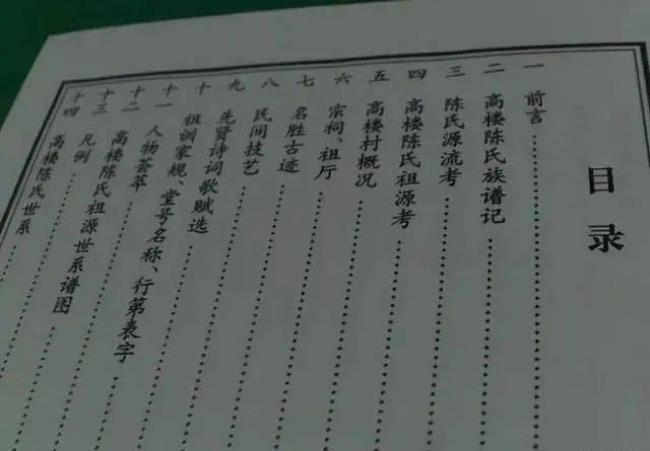 目录
一 前言
二 高楼陈氏族谱记
三 陈氏源流考
四 高楼陈氏祖源考
五 高楼村概况
六 宗祠、祖厅
七 名胜古迹
八 民间技艺
九 先贤诗词歌赋选
十 祖训家规、堂号名称、行第表字
十一 人物荟萃
十二 高楼陈氏祖源世系谱图
十三 凡例
十四 高楼陈氏世系